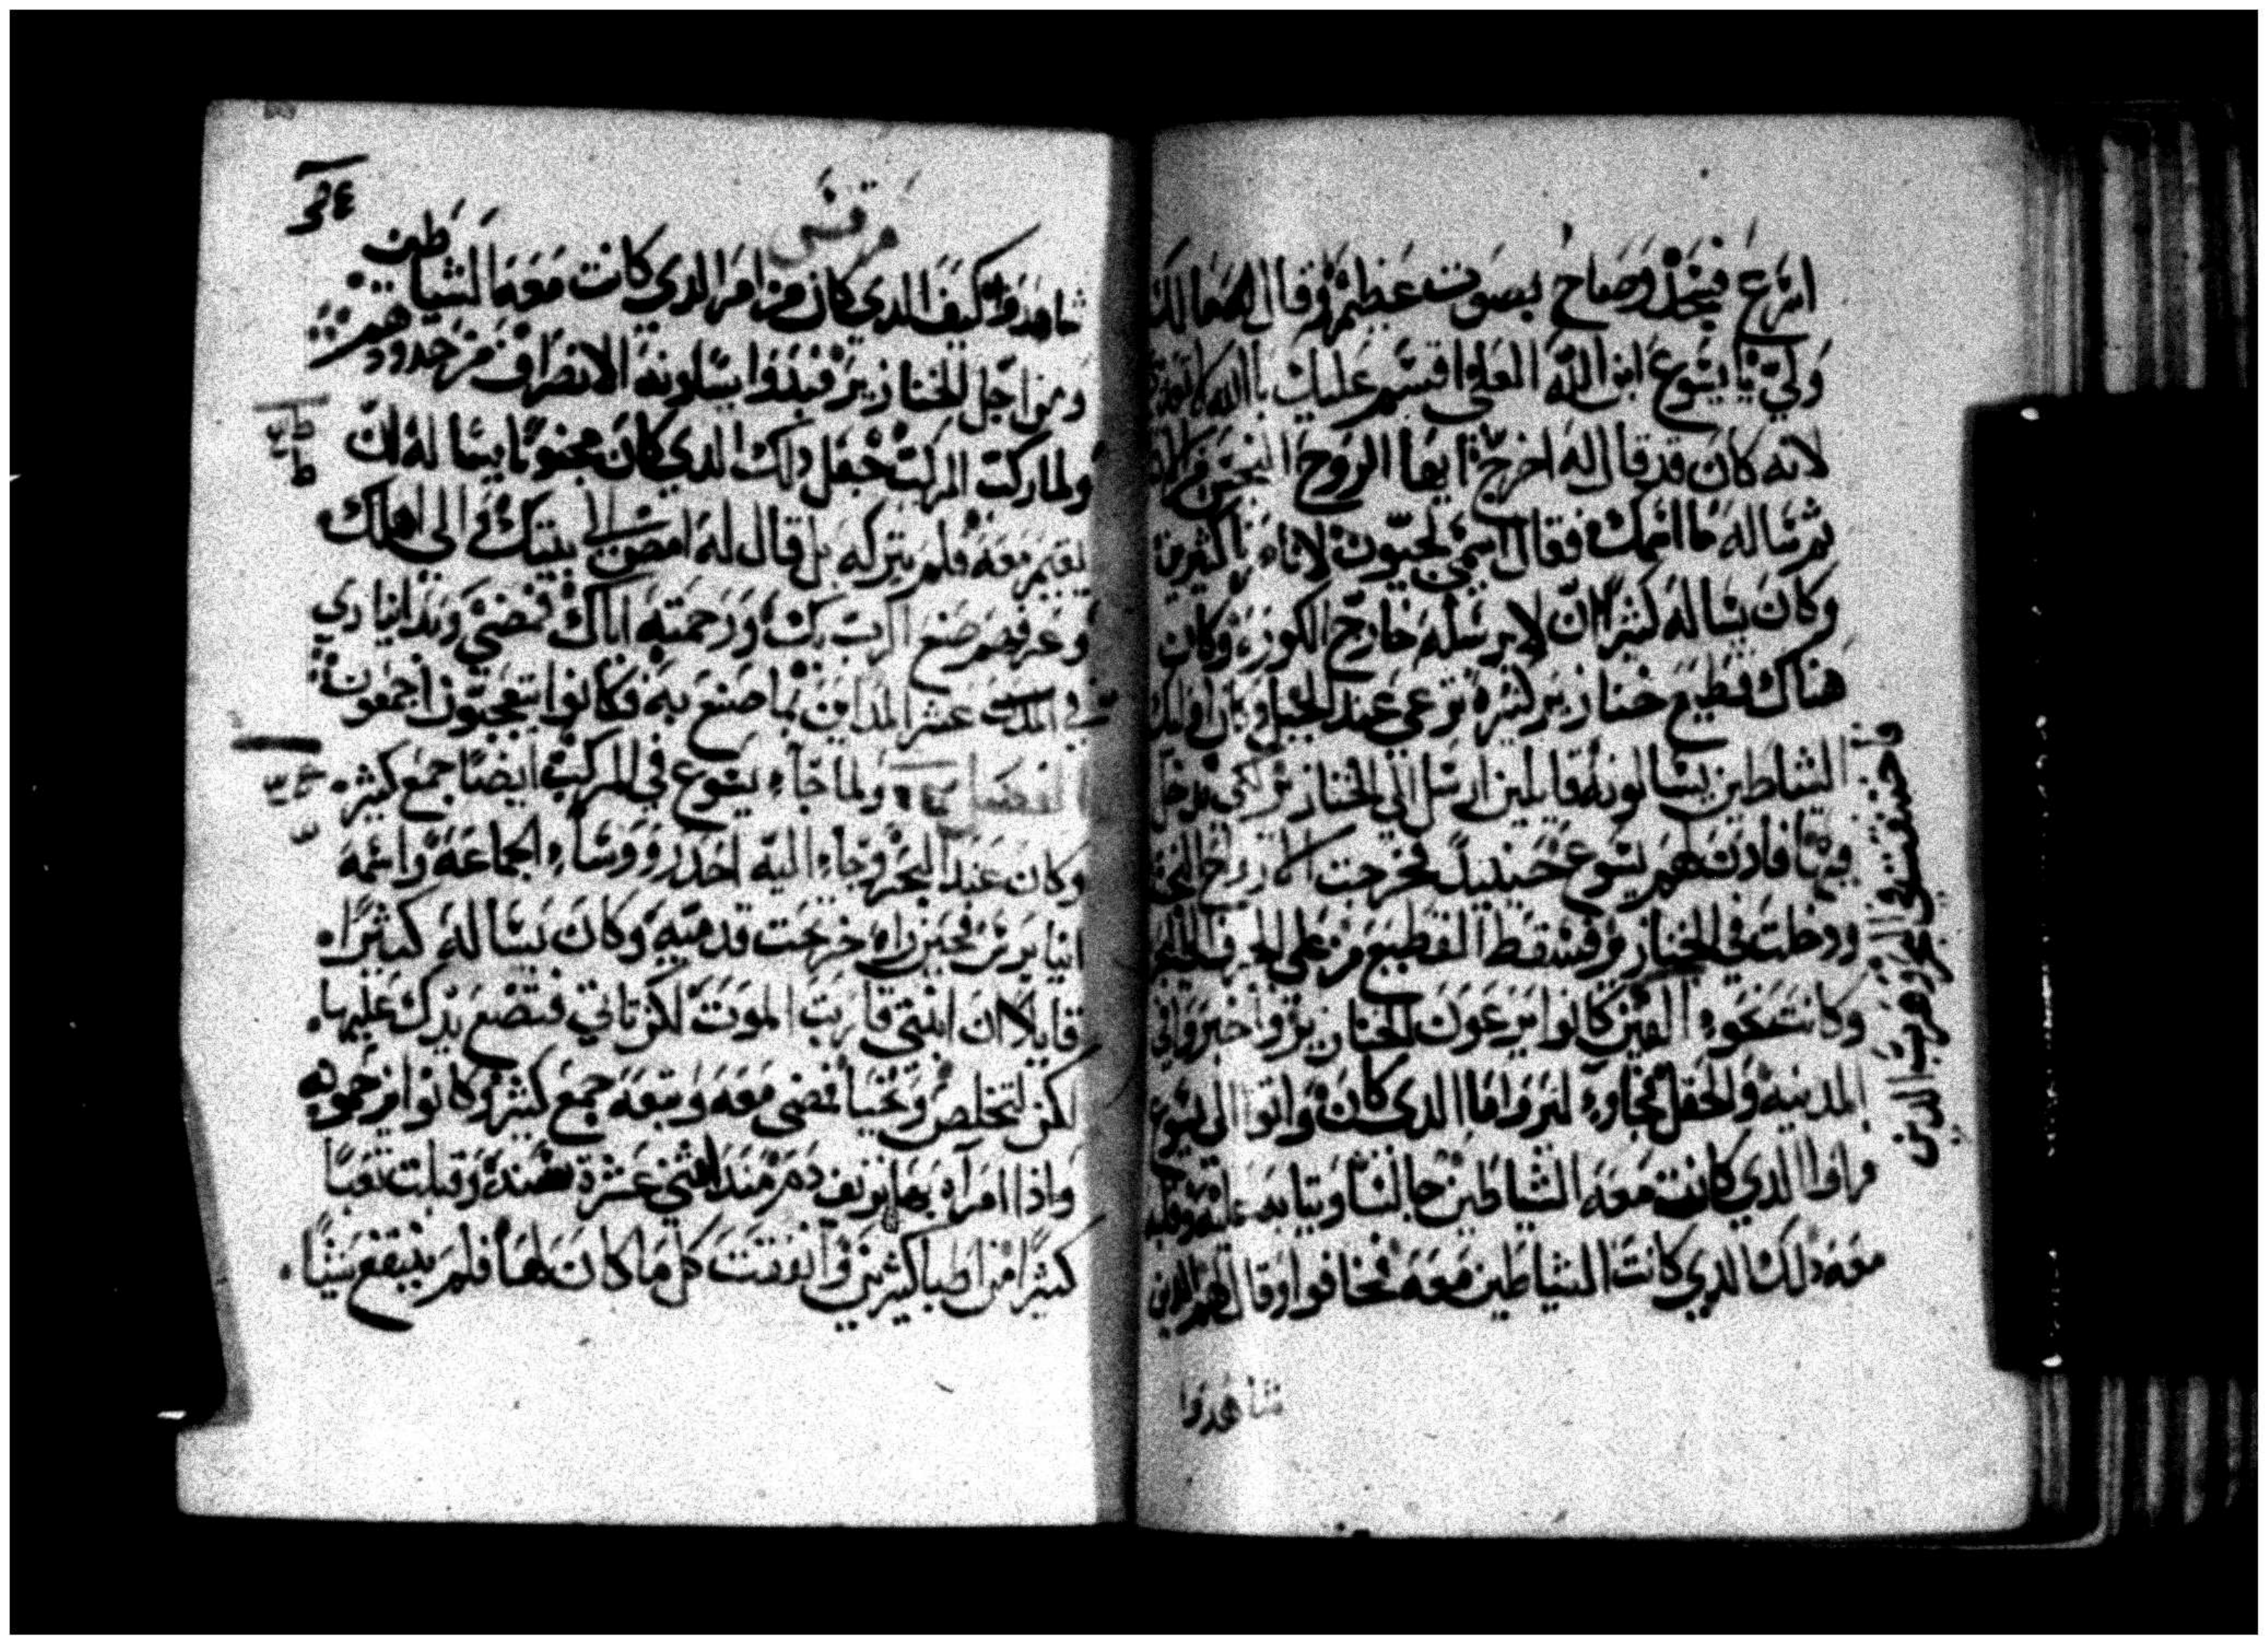 اسرع فسجد وصاح بصوت عظيم وقال له ما لك
ولي يا يسوع ابن الله العلي اقسم عليك بالله
لانه كان قد قال له اخرج ايها الروح النجس من
ثم ساله ما اسمك فقال اسمي لجيون لاننا كثيرين
وكان يساله كثيرا ان لا يرسله خارج الكوره وكان
هناك قطيع خنازير كثيره ترعى عند الجبل
الشياطين يسالونه قايلين ارسل الى الخنازير لكي ندخل
فيها فاذن لهم يسوع حينيذ فخرجت الارواح النجسه
ودخلت في الخنازير فسقط القطيع من على الجرف
وكانت نحو الفين كانوا يرعون الخنازير واخبروا في
المدينه والحقل فجاوا لينروا ما الذي كان واتوا الى يسوع
فراوا الذي كانت معه الشياطين جالسا وثيابه عليه
معه ذلك الذي كانت الشياطين معه فخافوا وقال لهم الذين
واختنقت في البحر وهرب الذين
شاهدوا
مرقس
شاهدوا كيف الذي كان من امر الذي كانت معه الشياطين
ومن اجل الخنازير فبدوا يسلونه الانصراف من حدودهم
ولما ركب المركب جعل ذلك الذي كان مجنونا يساله ان
يقيم معه فلم يتركه بل قال له امض الى بيتك الى اهلك
وعرفهم صنع الرب بك ورحمته اياك فمضى وبدا ينادي
في العشر المداين بما صنع به فكانوا يتعجبون اجمعون
الفصل ولما جاء يسوع في المركب ايضا جمع كثير
وكان عند البحر وجاء اليه احد رووسا الجماعة واسمه
يايرس فحين راه خر تحت قدميه وكان يساله كثيرا
قايلا ان ابنتي قاربت الموت لكن تاتي فتضع يدك عليها
لكن لتخلص وتحيا فمضى معه وتبعه جمع كثير وكانوا يزحمونه
واذا امراه بها نزف دم منذ اثني عشرة سنة وقبلت تعبا
كثيرا من اطبا كثيرين وانفقت كل ما كان لها فلم ينتفع شيا